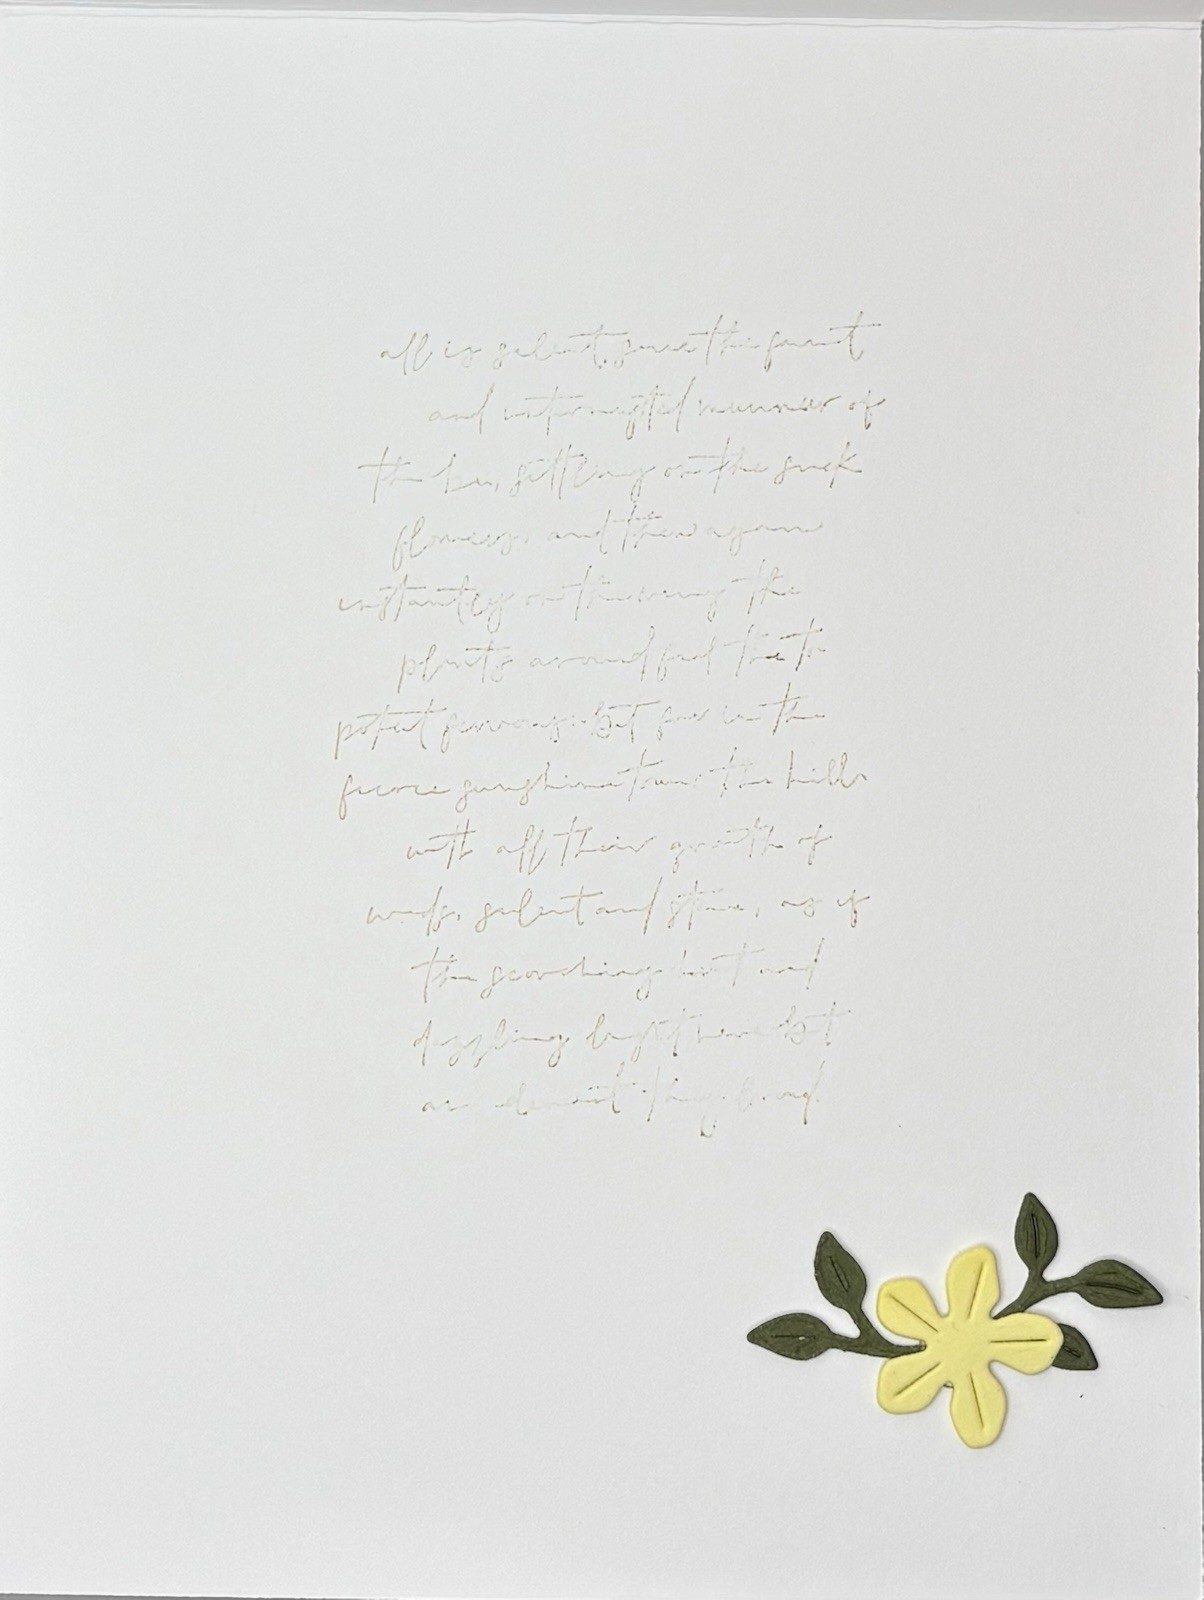 all is silent, save the faint
and interrupted murmur of
the bee, settling on the sick
flowers, and then again
instantly on the wing the
plants around feel the
potent but far in the
fierce sunshine tower the hills
with all their growth of
weeds, silent and stern, as if
the scorching heat and
dazzling light were but
an they loved.